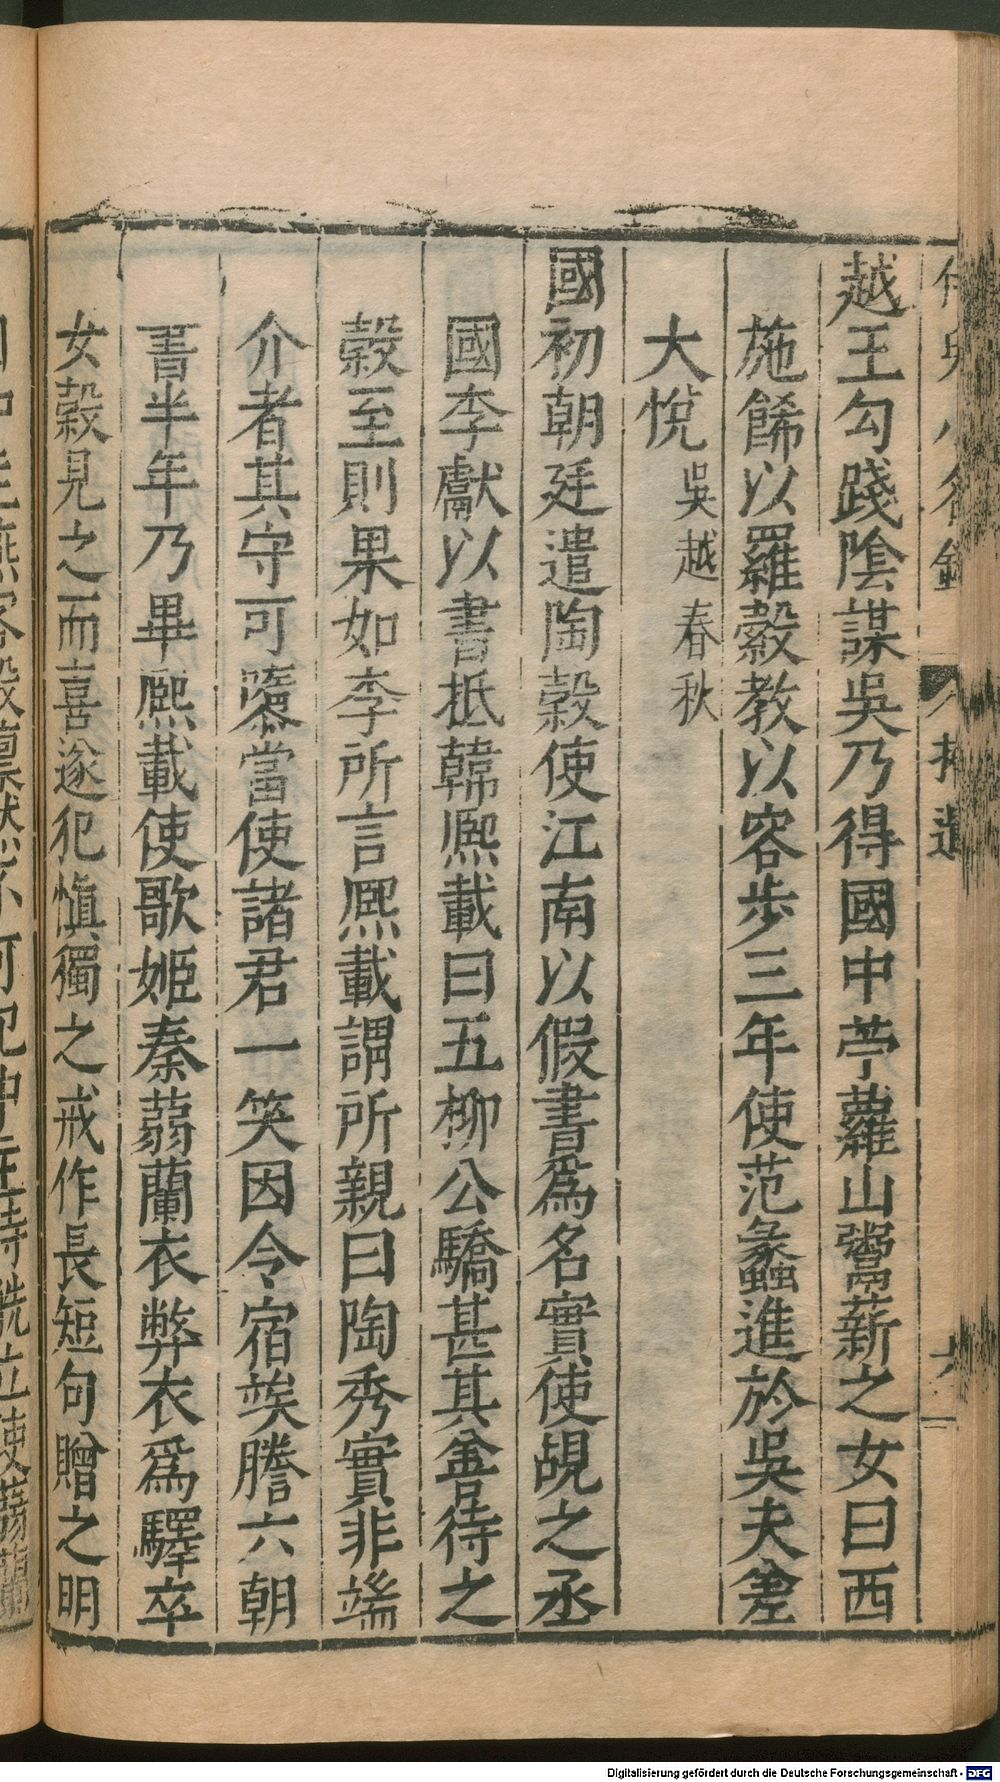 越王勾踐隂謀吳乃得國中苧蘿山鬻薪之女曰西
施餙以羅縠教以容步三年使范蠡進於吳夫差
大悅吳越春秋
國初朝廷遣陶穀使江南以假書爲名實使覘之丞
國李獻以書抵韓熈載曰五柳公驕甚其善待之
穀至則果如李所言熈載謂所親曰陶秀實非端
介者其守可隳當使諸君一笑因令宿竢謄六朝
書半年乃畢熈載使歌姬秦蒻蘭衣弊衣爲驛卒
女穀見之而喜遂犯慎獨之戒作長短句贈之明
Digitalisierung gefördert durch die Deutsche Forschungsgemeinschaft - DFG